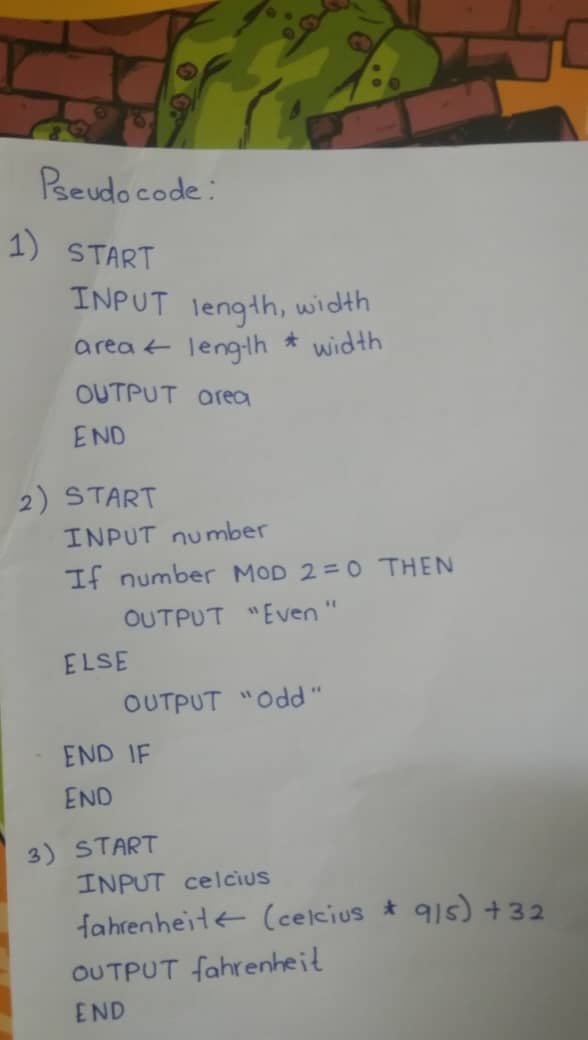 Pseudocode:
1) START
INPUT length, width
area ← length * width
OUTPUT area
END
2) START
INPUT number
If number MOD 2 = 0 THEN
OUTPUT "Even"
ELSE
OUTPUT "Odd"
END IF
END
3) START
INPUT celcius
fahrenheit ← (celcius * 9/5) + 32
OUTPUT fahrenheit
END